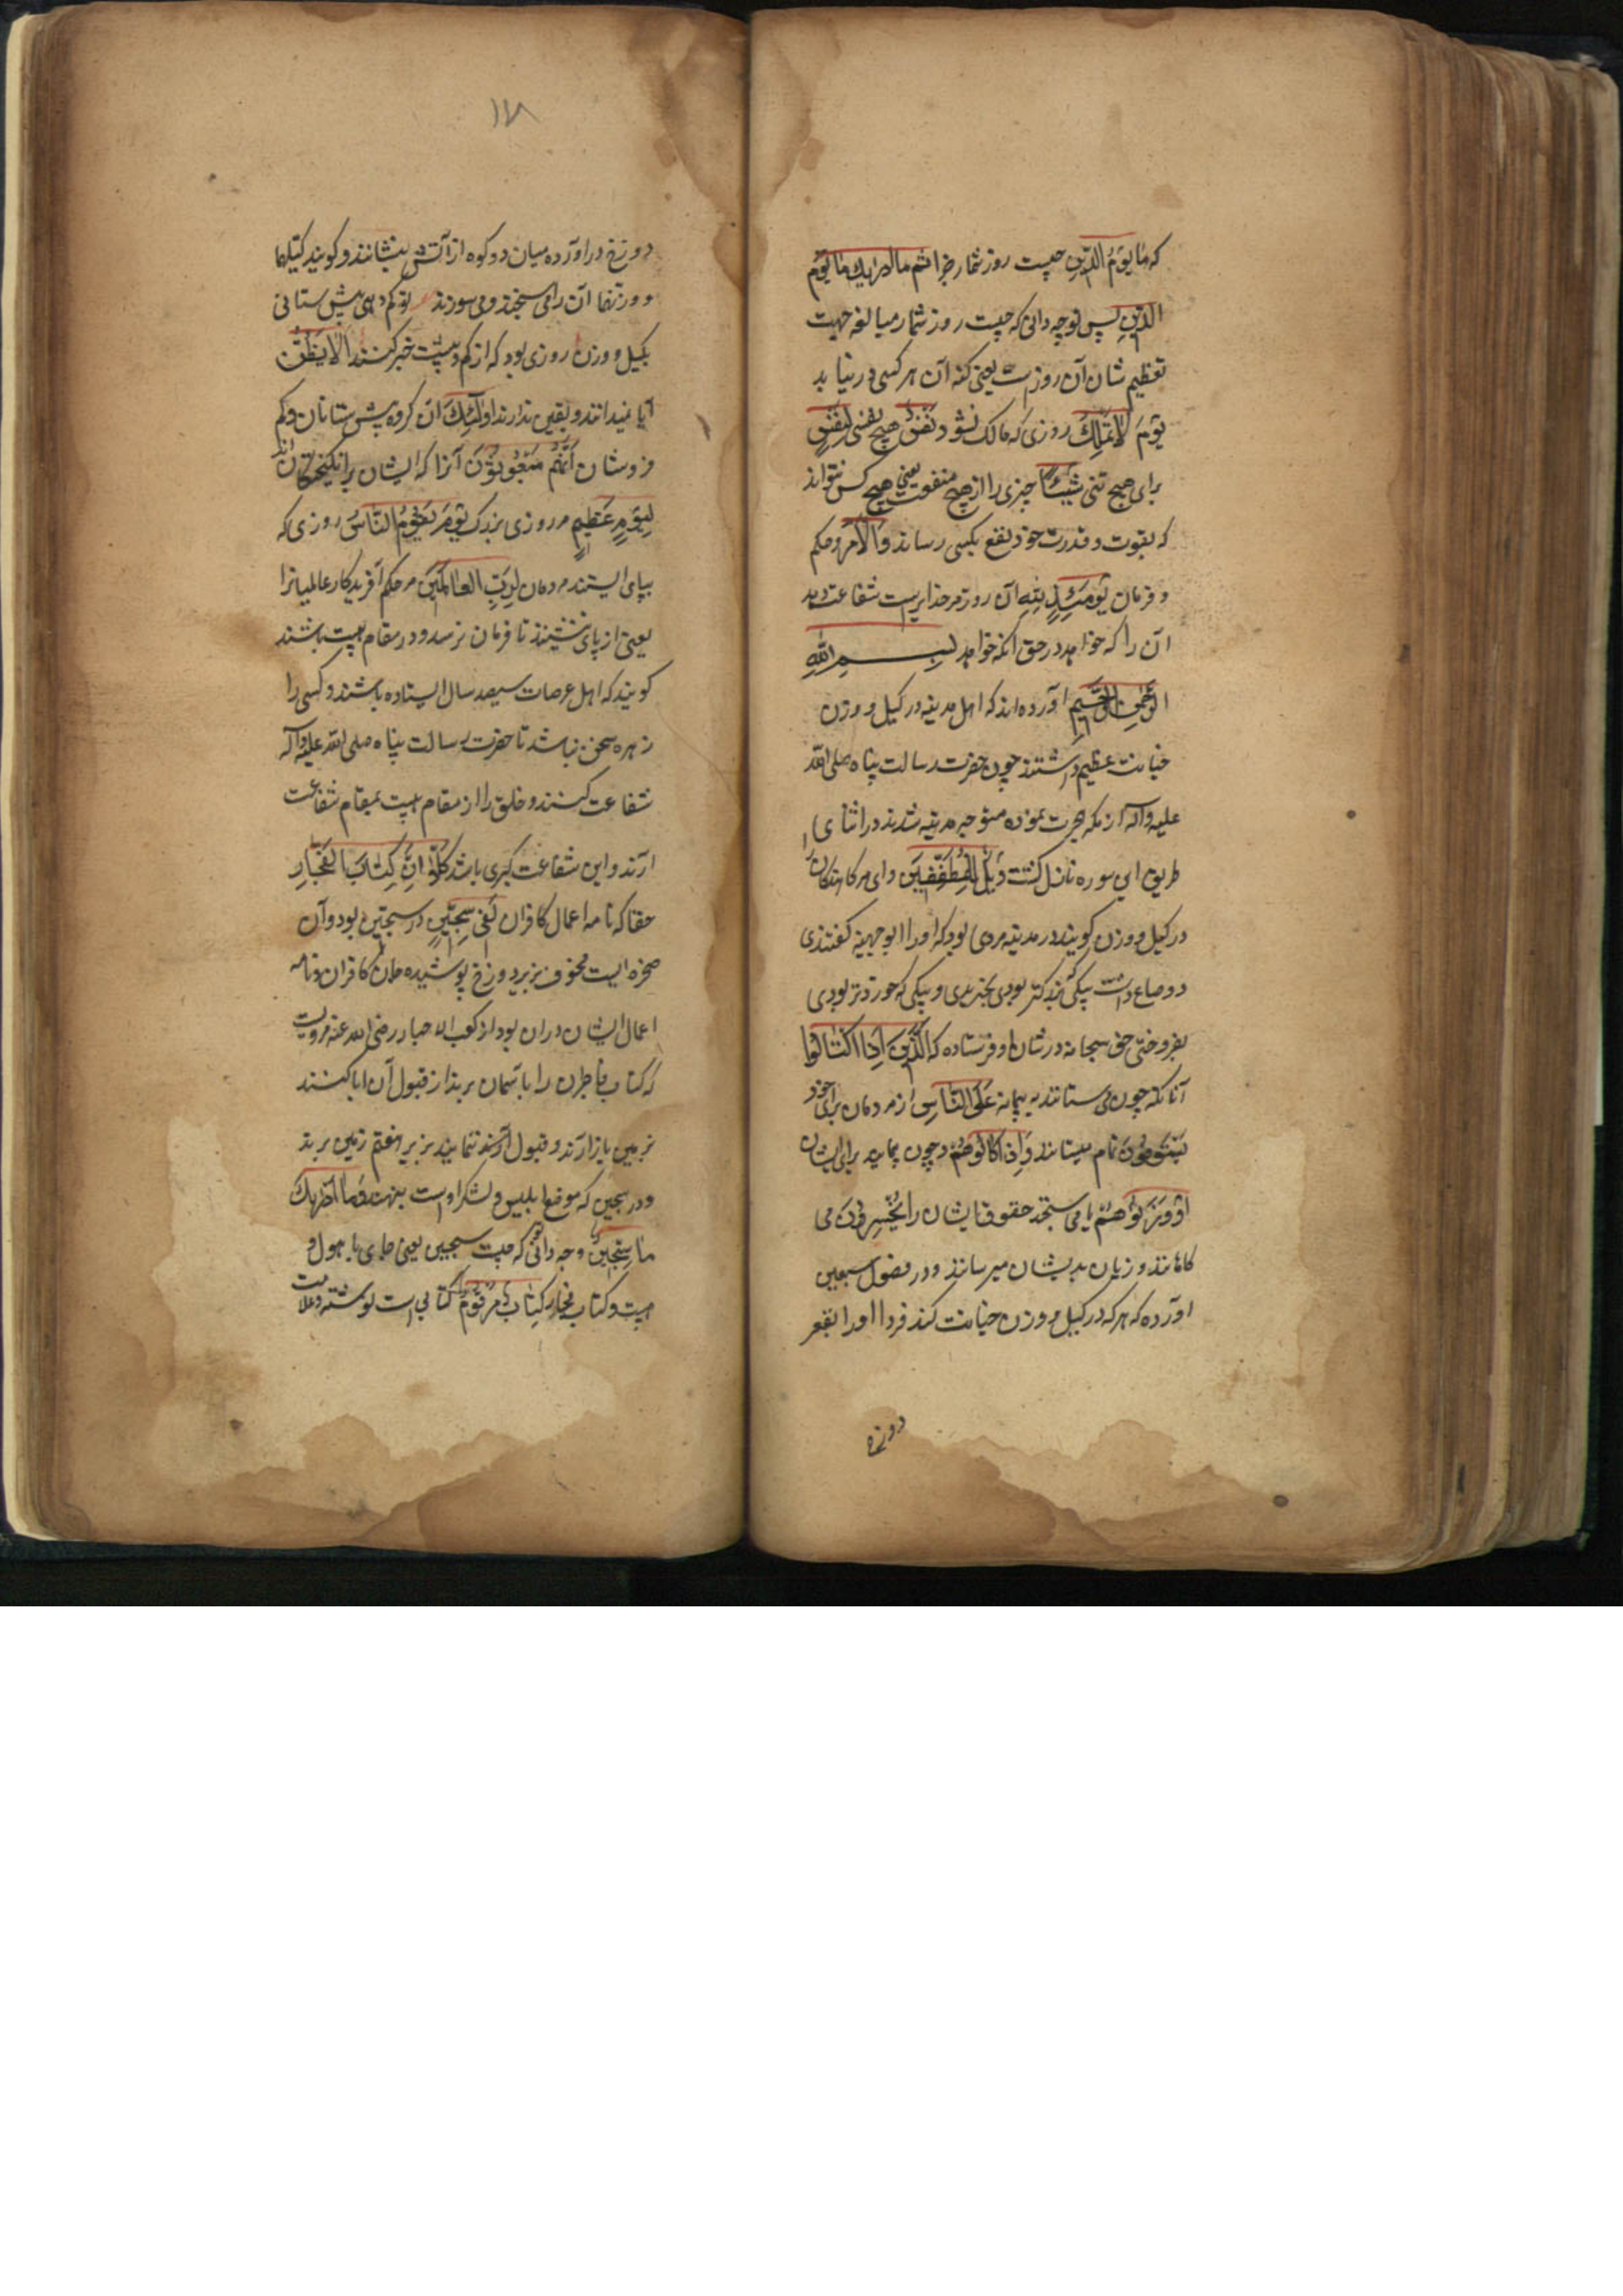 که مَا یَوْمُ الدِّینِ چیست روز شمار و جزا ثم ما ادریک ما یَوْمِ
الدّینِ پس تو چه دانی که چیست روز شمار مبالغه جهت
تعظیم شان آن روز است یعنی کنه آن هر کسی در نیابد
یَوْمَ لَا تَمْلِکُ روزی که مالک نشود نَفْسٌ هیچ نفسی لِنَفْسٍ
برای هیچ تنی شَیْئًا چیزی را از هیچ منفعت یعنی هیچ کس نتواند
که بقوت و قدرت خود نفع بکسی رساند وَالْاَمْرُ و حکم
و فرمان یَوْمَئِذٍ لِلّٰهِ آن روز مر خدایراست شفاعت دهد
آن را که خواهد در حق آنکه خواهد بسم اللّٰهِ
الرَّحْمٰنِ الرَّحِیْمِ آورده اند که اهل مدینه در کیل و وزن
خیانت عظیم داشتند چون حضرت رسالت پناه صلی اللّه
علیه وآله از مکه هجرت نموده متوجه مدینه شدند در اثنای
طریق این سوره نازل گشت وَیْلٌ لِلْمُطَفِّفِیْنَ وای مر کاهندگان را
در کیل و وزن گویند در مدینه مردی بود که او را ابو جهینه گفتندی
دو صاع داشت یکی بزرگتر بودی بخریدی و یکی که خوردتر بودی
بفروختی حق سبحانه در شان او فرستاده که الَّذِیْنَ اِذَا اکْتَالُوْا
آنانکه چون می ستانند به پیمانه عَلَی النَّاسِ از مردمان برای خود
یَسْتَوْفُوْنَ تمام میستانند وَاِذَا کَالُوْهُمْ و چون پیمایند برای ایشان
اَوْ وَزَنُوْهُمْ یا می سنجند حقوق ایشان را یُخْسِرُوْنَ می
کاهانند و زیان بدیشان میرسانند و در فصول سبعین
آورده که هر که در کیل و وزن خیانت کند فردا او را بقعر
دوزخ
۱۷۸
دوزخ در آورده میان دو کوه از آتش بنشانند و گویند کیلهما
و وزنهما آن را می سنجد و می سوزند تو کم دهی بیش ستانی
بکیل و وزن روزی بود که از کم و بیشت خبر کنند اَلَا یَظُنُّ
آیا نمیدانند و یقین ندارند اُولٰئِکَ آن گروه بیش ستانان و کم
فروشان اَنَّهُمْ مَبْعُوْثُوْنَ آنرا که ایشان برانگیختگان اند
لِیَوْمٍ عَظِیْمٍ مر روزی بزرگ یَوْمَ یَقُوْمُ النَّاسُ روزی که
بپای ایستند مردمان لِرَبِّ الْعَالَمِیْنَ مر حکم آفریدگار عالمیانرا
یعنی از پای ننشینند تا فرمان نرسد و در مقام هیبت باشند
گویند که اهل عرصات سیصد سال ایستاده باشند و کسی را
زهره سخن نباشد تا حضرت رسالت پناه صلی اللّه علیه وآله
شفاعت کنند و خلق را از مقام هیبت بمقام شفاعت
آرند و این شفاعت کبری باشد کَلَّا اِنَّ کِتَابَ الْفُجَّارِ
حقا که نامه اعمال کافران لَفِیْ سِجِّیْنٍ در سجین بود و آن
صخره ایست مجوف بزیر دوزخ پوشیده کافران و نامه
اعمال ایشان در آن بود از کعب الاحبار رضی الله عنه مرویست
که کتاب فاجران را باسمان برند از قبول آن ابا کنند
بزمین باز آرند و قبول آن ننمایند بزیر هفتم زمین برند
و در سجین که موضع ابلیس و لشکر اوست بنهند وَمَا اَدْرٰیکَ
مَا سِجِّیْنٌ و چه دانی که چیست سجین یعنی جای با هول و
هیبت و کتاب فجار کِتَابٌ مَرْقُوْمٌ کتابی است نوشته و علامت